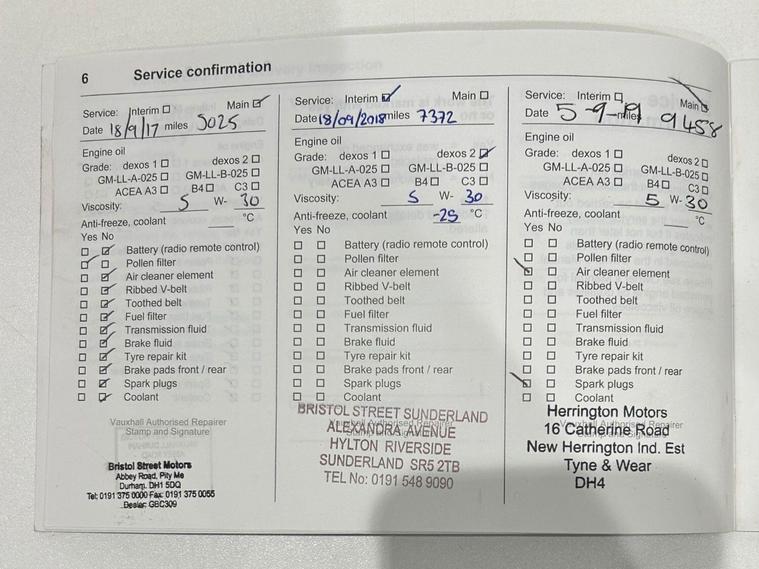 6 Service confirmation
Service: Interim ☐ Main ☑
Date 18/9/17 miles 5025
Engine oil
Grade: dexos 1 ☐ dexos 2 ☐
GM-LL-A-025 ☐ GM-LL-B-025 ☐
ACEA A3 ☐ B4 ☐ C3 ☐
Viscosity: 5 W- 30
Anti-freeze, coolant °C
Yes No
☐ ☑ Battery (radio remote control)
☑ ☐ Pollen filter
☐ ☑ Air cleaner element
☐ ☑ Ribbed V-belt
☐ ☑ Toothed belt
☐ ☑ Fuel filter
☐ ☑ Transmission fluid
☐ ☑ Brake fluid
☐ ☑ Tyre repair kit
☐ ☑ Brake pads front / rear
☐ ☑ Spark plugs
☐ ☑ Coolant
Vauxhall Authorised Repairer
Stamp and Signature
Bristol Street Motors
Abbey Road, Pity Me
Durham. DH1 5DQ
Tel: 0191 375 0000 Fax: 0191 375 0055
Dealer: GBC309
Service: Interim ☑ Main ☐
Date 18/09/2018 miles 7372
Engine oil
Grade: dexos 1 ☐ dexos 2 ☑
GM-LL-A-025 ☐ GM-LL-B-025 ☐
ACEA A3 ☐ B4 ☐ C3 ☐
Viscosity: 5 W- 30
Anti-freeze, coolant -25 °C
Yes No
☐ ☐ Battery (radio remote control)
☐ ☐ Pollen filter
☐ ☐ Air cleaner element
☐ ☐ Ribbed V-belt
☐ ☐ Toothed belt
☐ ☐ Fuel filter
☐ ☐ Transmission fluid
☐ ☐ Brake fluid
☐ ☐ Tyre repair kit
☐ ☐ Brake pads front / rear
☐ ☐ Spark plugs
☐ ☐ Coolant
BRISTOL STREET SUNDERLAND
Vauxhall Authorised Repairer
ALEXANDRA AVENUE
Stamp and Signature
HYLTON RIVERSIDE
SUNDERLAND SR5 2TB
TEL No: 0191 548 9090
Service: Interim ☐ Main ☑
Date 5-9-19 miles 9458
Engine oil
Grade: dexos 1 ☐ dexos 2 ☐
GM-LL-A-025 ☐ GM-LL-B-025 ☐
ACEA A3 ☐ B4 ☐ C3 ☐
Viscosity: 5 W- 30
Anti-freeze, coolant °C
Yes No
☐ ☐ Battery (radio remote control)
☐ ☐ Pollen filter
☑ ☐ Air cleaner element
☐ ☐ Ribbed V-belt
☐ ☐ Toothed belt
☐ ☐ Fuel filter
☐ ☐ Transmission fluid
☐ ☐ Brake fluid
☐ ☐ Tyre repair kit
☐ ☐ Brake pads front / rear
☑ ☐ Spark plugs
☐ ☐ Coolant
Herrington Motors
Vauxhall Authorised Repairer
16 Catherine Road
Stamp and Signature
New Herrington Ind. Est
Tyne & Wear
DH4